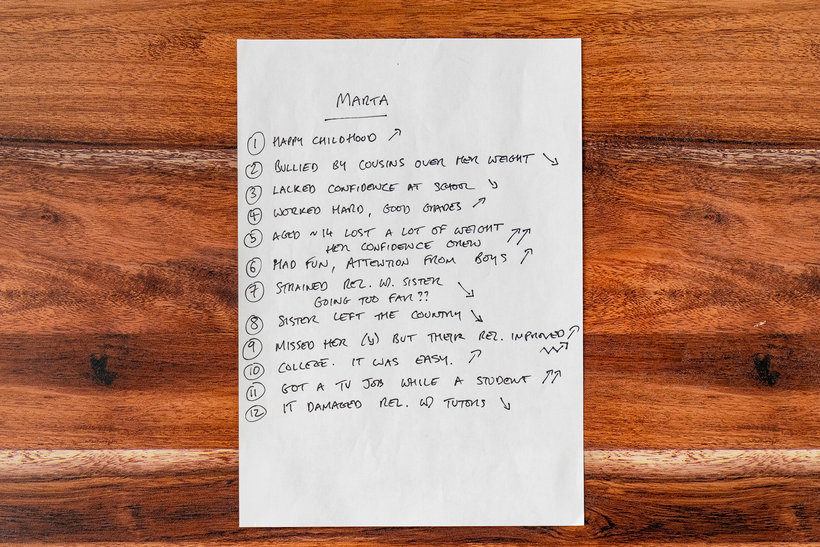 MARTA
① HAPPY CHILDHOOD ↗
② BULLIED BY COUSINS OVER HER WEIGHT ↘
③ LACKED CONFIDENCE AT SCHOOL ↘
④ WORKED HARD, GOOD GRADES ↗
⑤ AGED ~14 LOST A LOT OF WEIGHT ↗↗
HER CONFIDENCE GREW
⑥ HAD FUN, ATTENTION FROM BOYS ↗
⑦ STRAINED REL. W. SISTER ↘
GOING TOO FAR??
⑧ SISTER LEFT THE COUNTRY ↘
⑨ MISSED HER (↘) BUT THEIR REL. IMPROVED ↗
⑩ COLLEGE. IT WAS EASY. ↗
⑪ GOT A TV JOB WHILE A STUDENT ↗↗
⑫ IT DAMAGED REL. W/ TUTORS ↘